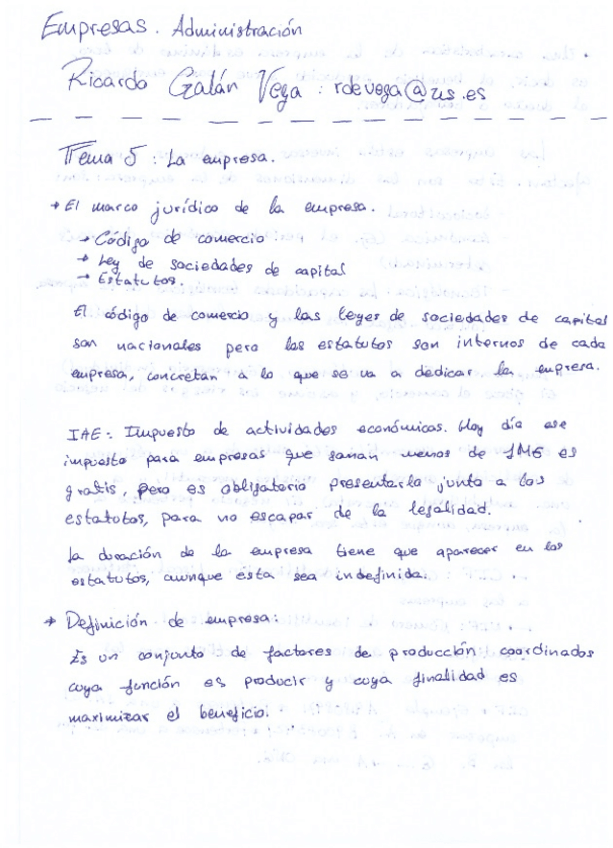 Empresas. Administración
Ricardo Galán Vega : rdevega@us.es
Tema 5 : La empresa.
→ El marco jurídico de la empresa.
→ Código de comercio
→ Ley de sociedades de capital
→ Estatutos.
El código de comercio y las leyes de sociedades de capital
son nacionales pero los estatutos son internos de cada
empresa, concretan a lo que se va a dedicar la empresa.
IAE: Impuesto de actividades económicas. Hoy día ese
impuesto para empresas que ganan menos de 1M€ es
gratis, pero es obligatorio presentarla junto a los
estatutos, para no escapar de la legalidad.
La duración de la empresa tiene que aparecer en los
estatutos, aunque esta sea indefinida.
→ Definición de empresa:
Es un conjunto de factores de producción coordinados
cuya función es producir y cuya finalidad es
maximizar el beneficio.